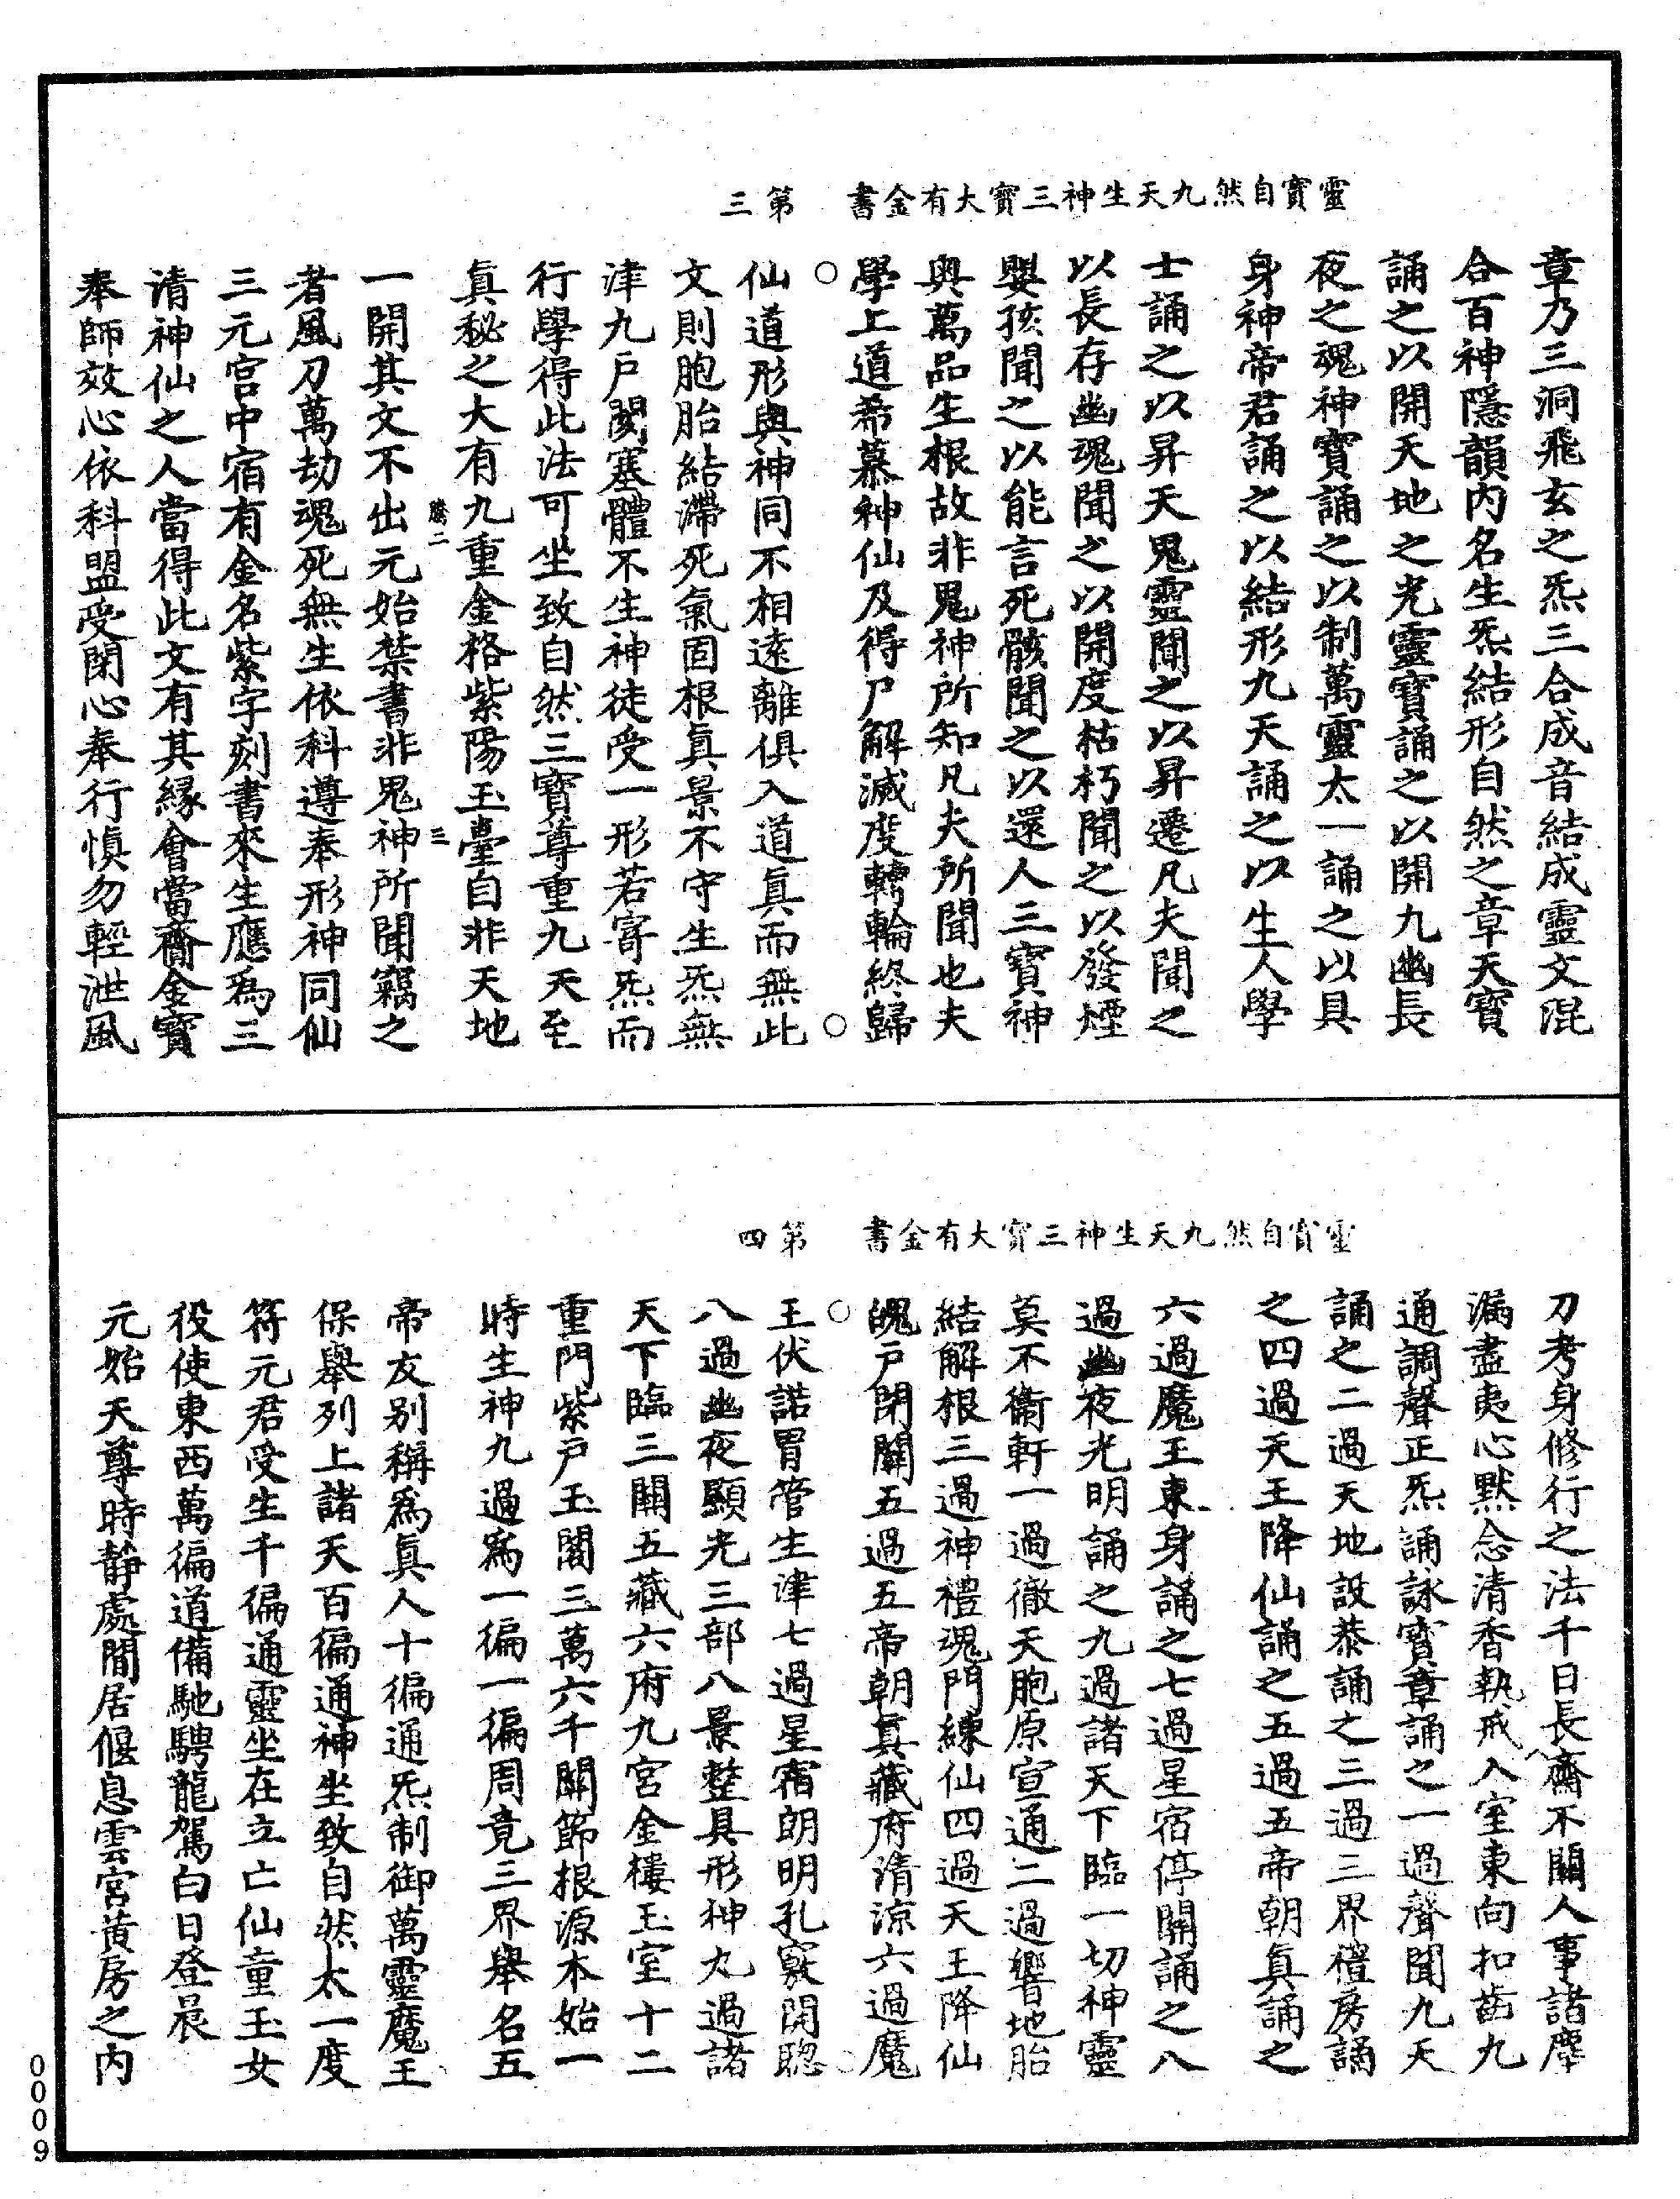 靈寶自然九天生神三寶大有金書　第三
章乃三洞飛玄之炁三合成音結成靈文混
合百神隱韻內名生炁結形自然之章天寶
誦之以開天地之光靈寶誦之以開九幽長
夜之魂神寶誦之以制萬靈太一誦之以具
身神帝君誦之以結形九天誦之以生人學
士誦之以昇天鬼靈聞之以昇遷凡夫聞之
以長存幽魂聞之以開度枯朽聞之以發煙
嬰孩聞之以能言死骸聞之以還人三寶神
奥萬品生根故非鬼神所知凡夫所聞也夫
學上道希慕神仙及得尸解滅度轉輪終歸
仙道形與神同不相遠離俱入道真而無此
文則胞胎結滯死氣固根真景不守生炁無
津九戶閡塞體不生神徒受一形若寄炁而
行學得此法可坐致自然三寶尊重九天至
真秘之大有九重金格紫陽玉臺自非天地
一開其文不出元始禁書非鬼神所聞竊之
者風刀萬劫魂死無生依科遵奉形神同仙
三元宮中宿有金名紫字刻書來生應爲三
清神仙之人當得此文有其緣會當齎金寶
奉師效心依科盟受閉心奉行慎勿輕泄風
靈寶自然九天生神三寶大有金書　第四
刀考身修行之法千日長齋不關人事諸塵
漏盡夷心默念清香執戒入室東向扣齒九
通調聲正炁誦詠寶章誦之一過聲聞九天
誦之二過天地設恭誦之三過三界禮房誦
之四過天王降仙誦之五過五帝朝真誦之
六過魔王束身誦之七過星宿停關誦之八
過幽夜光明誦之九過諸天下臨一切神靈
莫不衛軒一過徹天胞原宣通二過響地胎
結解根三過神禮魂門練仙四過天王降仙
魄戶閉關五過五帝朝真藏府清涼六過魔
王伏諾胃管生津七過星宿朗明孔竅開聰
八過幽夜顯光三部八景整具形神九過諸
天下臨三關五藏六府九宮金樓玉室十二
重門紫戶玉閣三萬六千關節根源本始一
時生神九過爲一徧一徧周竟三界舉名五
帝友別稱爲真人十徧通炁制御萬靈魔王
保舉列上諸天百徧通神坐致自然太一度
符元君受生千徧通靈坐在立亡仙童玉女
役使東西萬徧道備馳騁龍駕白日登晨
元始天尊時靜處閒居偃息雲宮黃房之內
0009